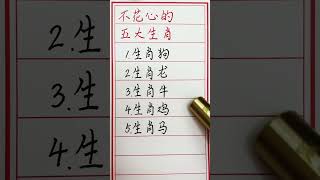 不花心的
五大生肖
1.生肖狗
2.生肖龙
3.生肖牛
4.生肖鸡
5.生肖马
2.生
3.生
4.生